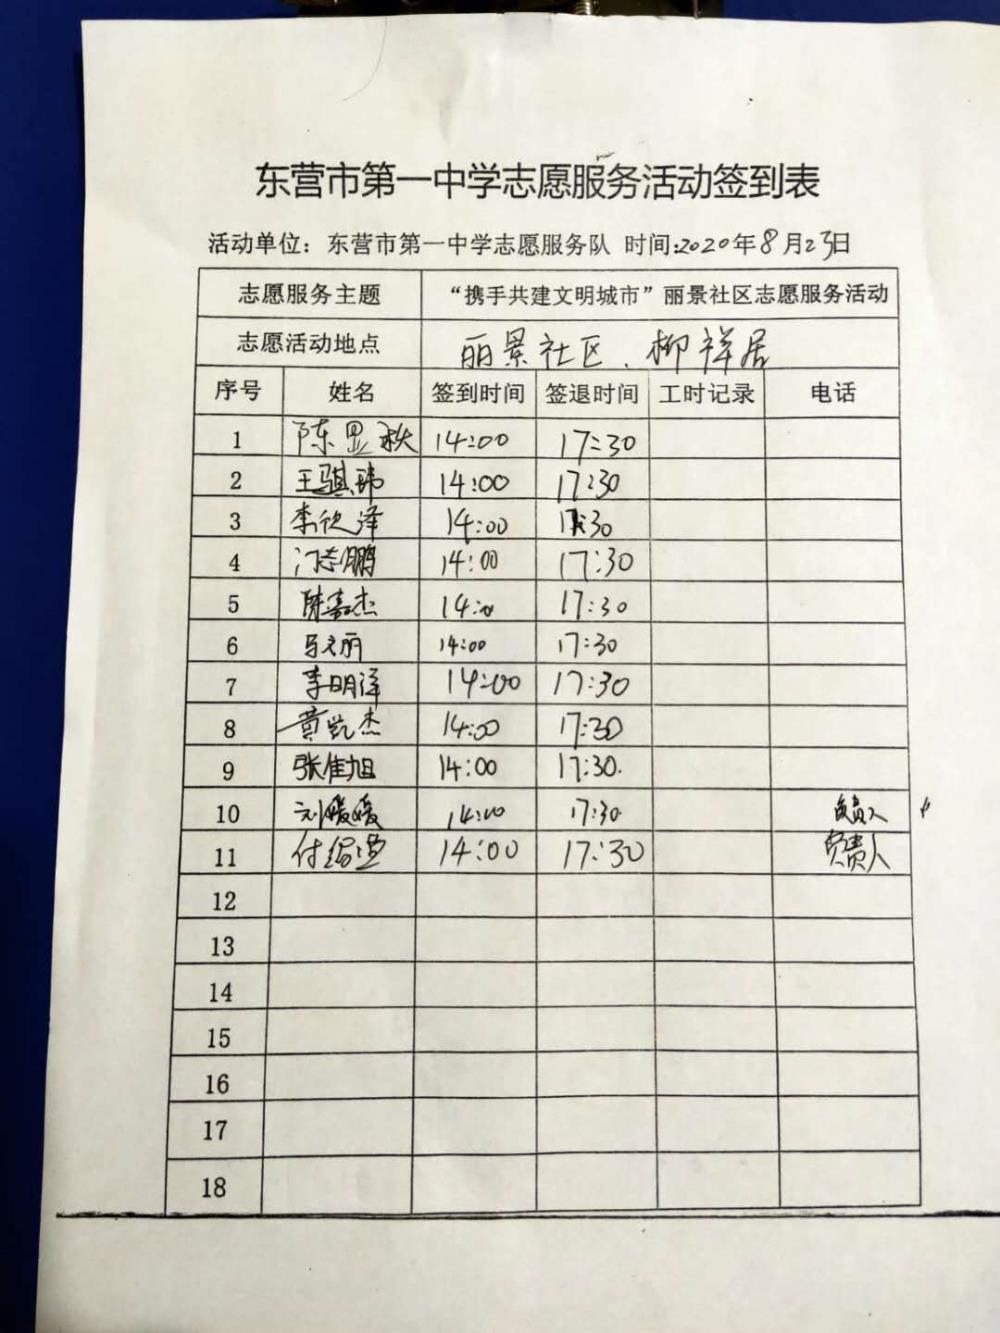 东营市第一中学志愿服务活动签到表
活动单位：东营市第一中学志愿服务队 时间:2020年8月23日
志愿服务主题 “携手共建文明城市”丽景社区志愿服务活动
志愿活动地点 丽景社区、柳祥居
序号 姓名 签到时间 签退时间 工时记录 电话
1 陈显秋 14:00 17:30
2 王骐玮 14:00 17:30
3 李欣泽 14:00 17:30
4 门志鹏 14:00 17:30
5 陈嘉杰 14:00 17:30
6 14:00 17:30
7 李明泽 14:00 17:30
8 黄凯杰 14:00 17:30
9 张佳旭 14:00 17:30.
10 刘媛媛 14:00 17:30 负责人
11 14:00 17:30 负责人
12
13
14
15
16
17
18